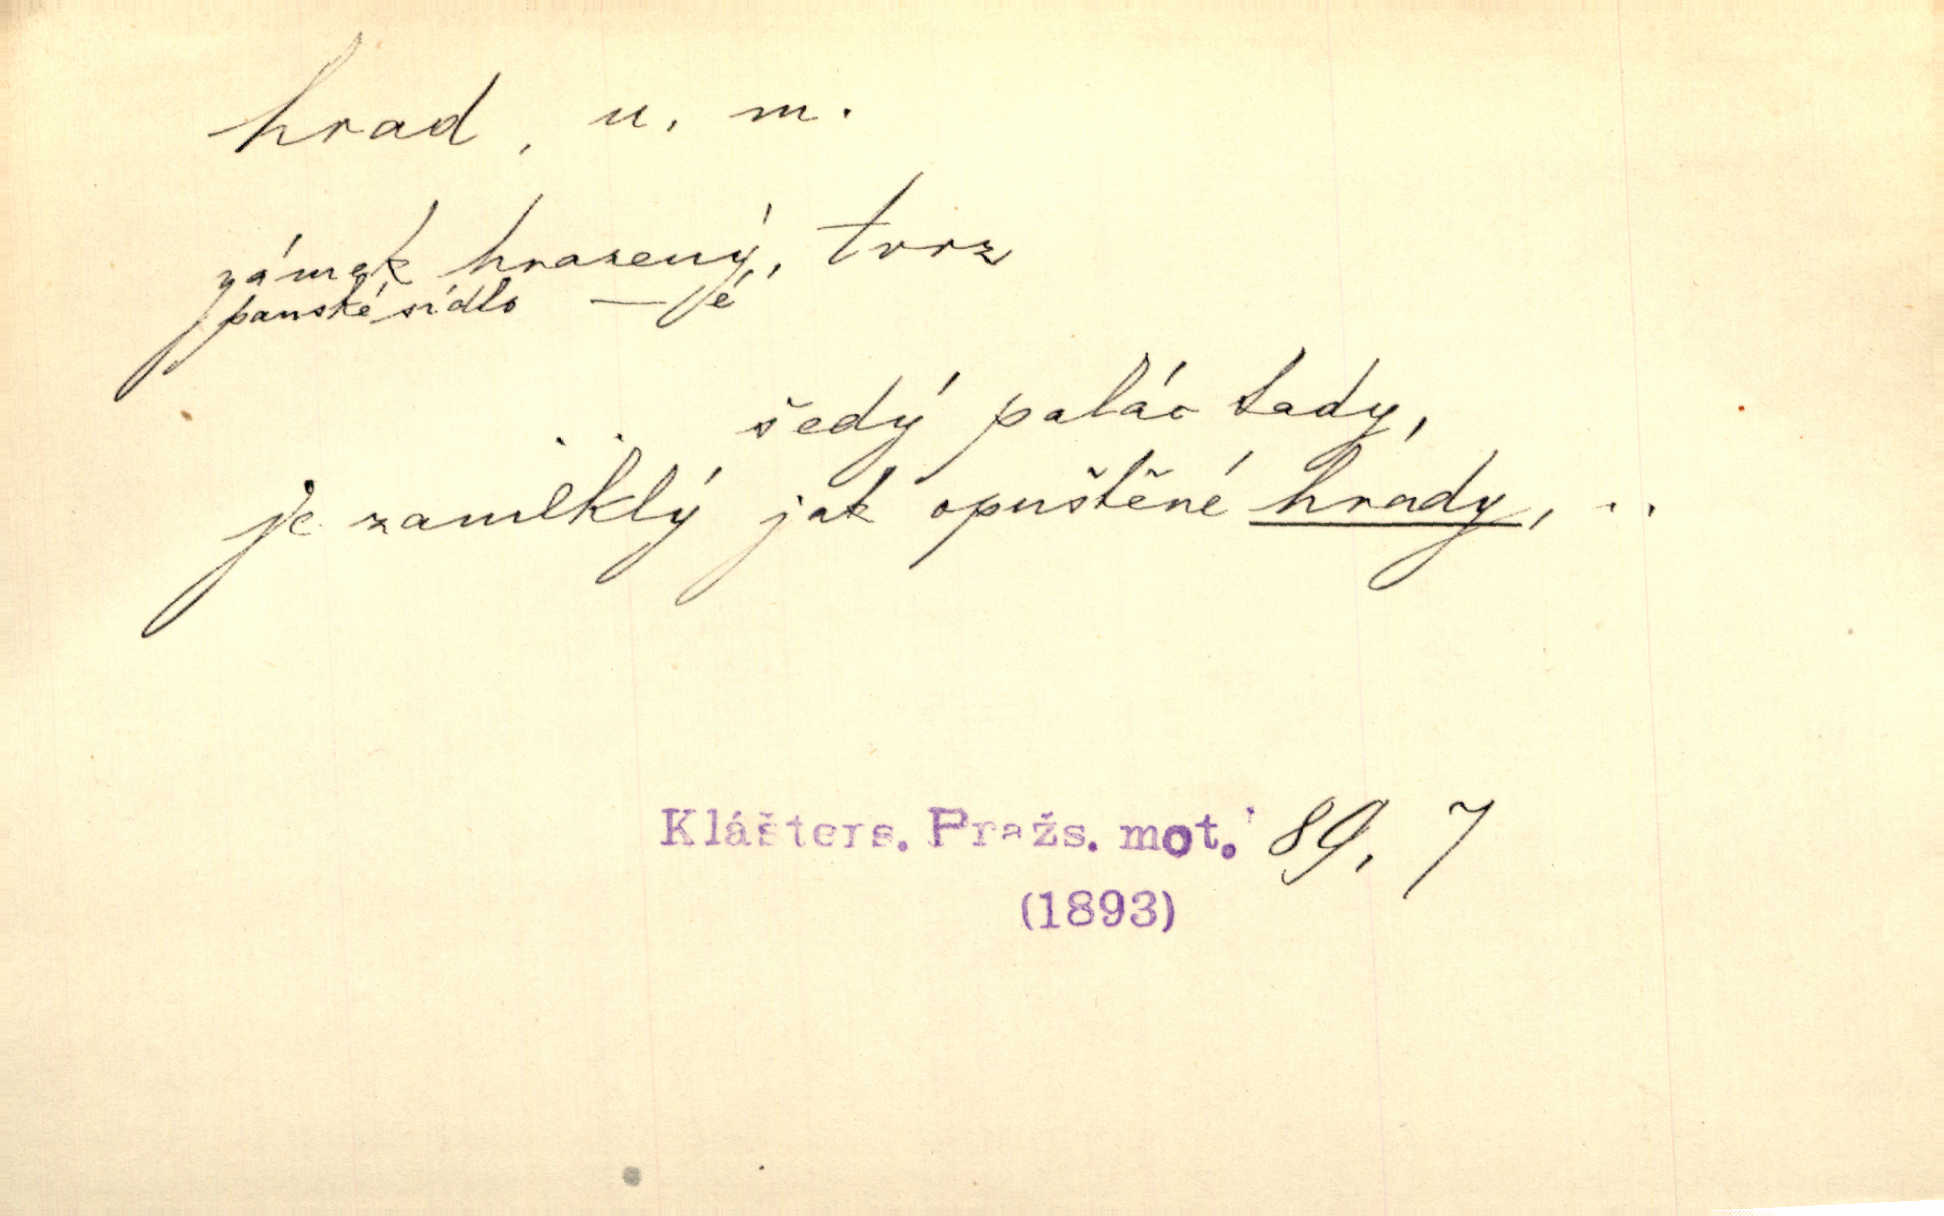 hrad, u, m.
zámek hrazený, tvrz
panské sídlo — é
šedý palác tady,
je zamlklý jak opuštěné hrady, ..
Klášters. Pražs. mot. 89, 7
(1893)